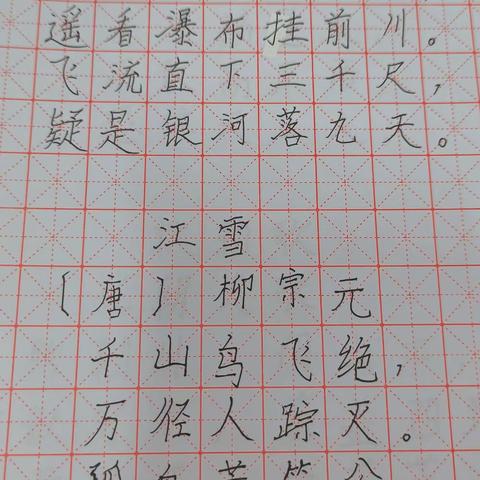 遥看瀑布挂前川。
飞流直下三千尺，
疑是银河落九天。
江雪
〔唐〕柳宗元
千山鸟飞绝，
万径人踪灭。